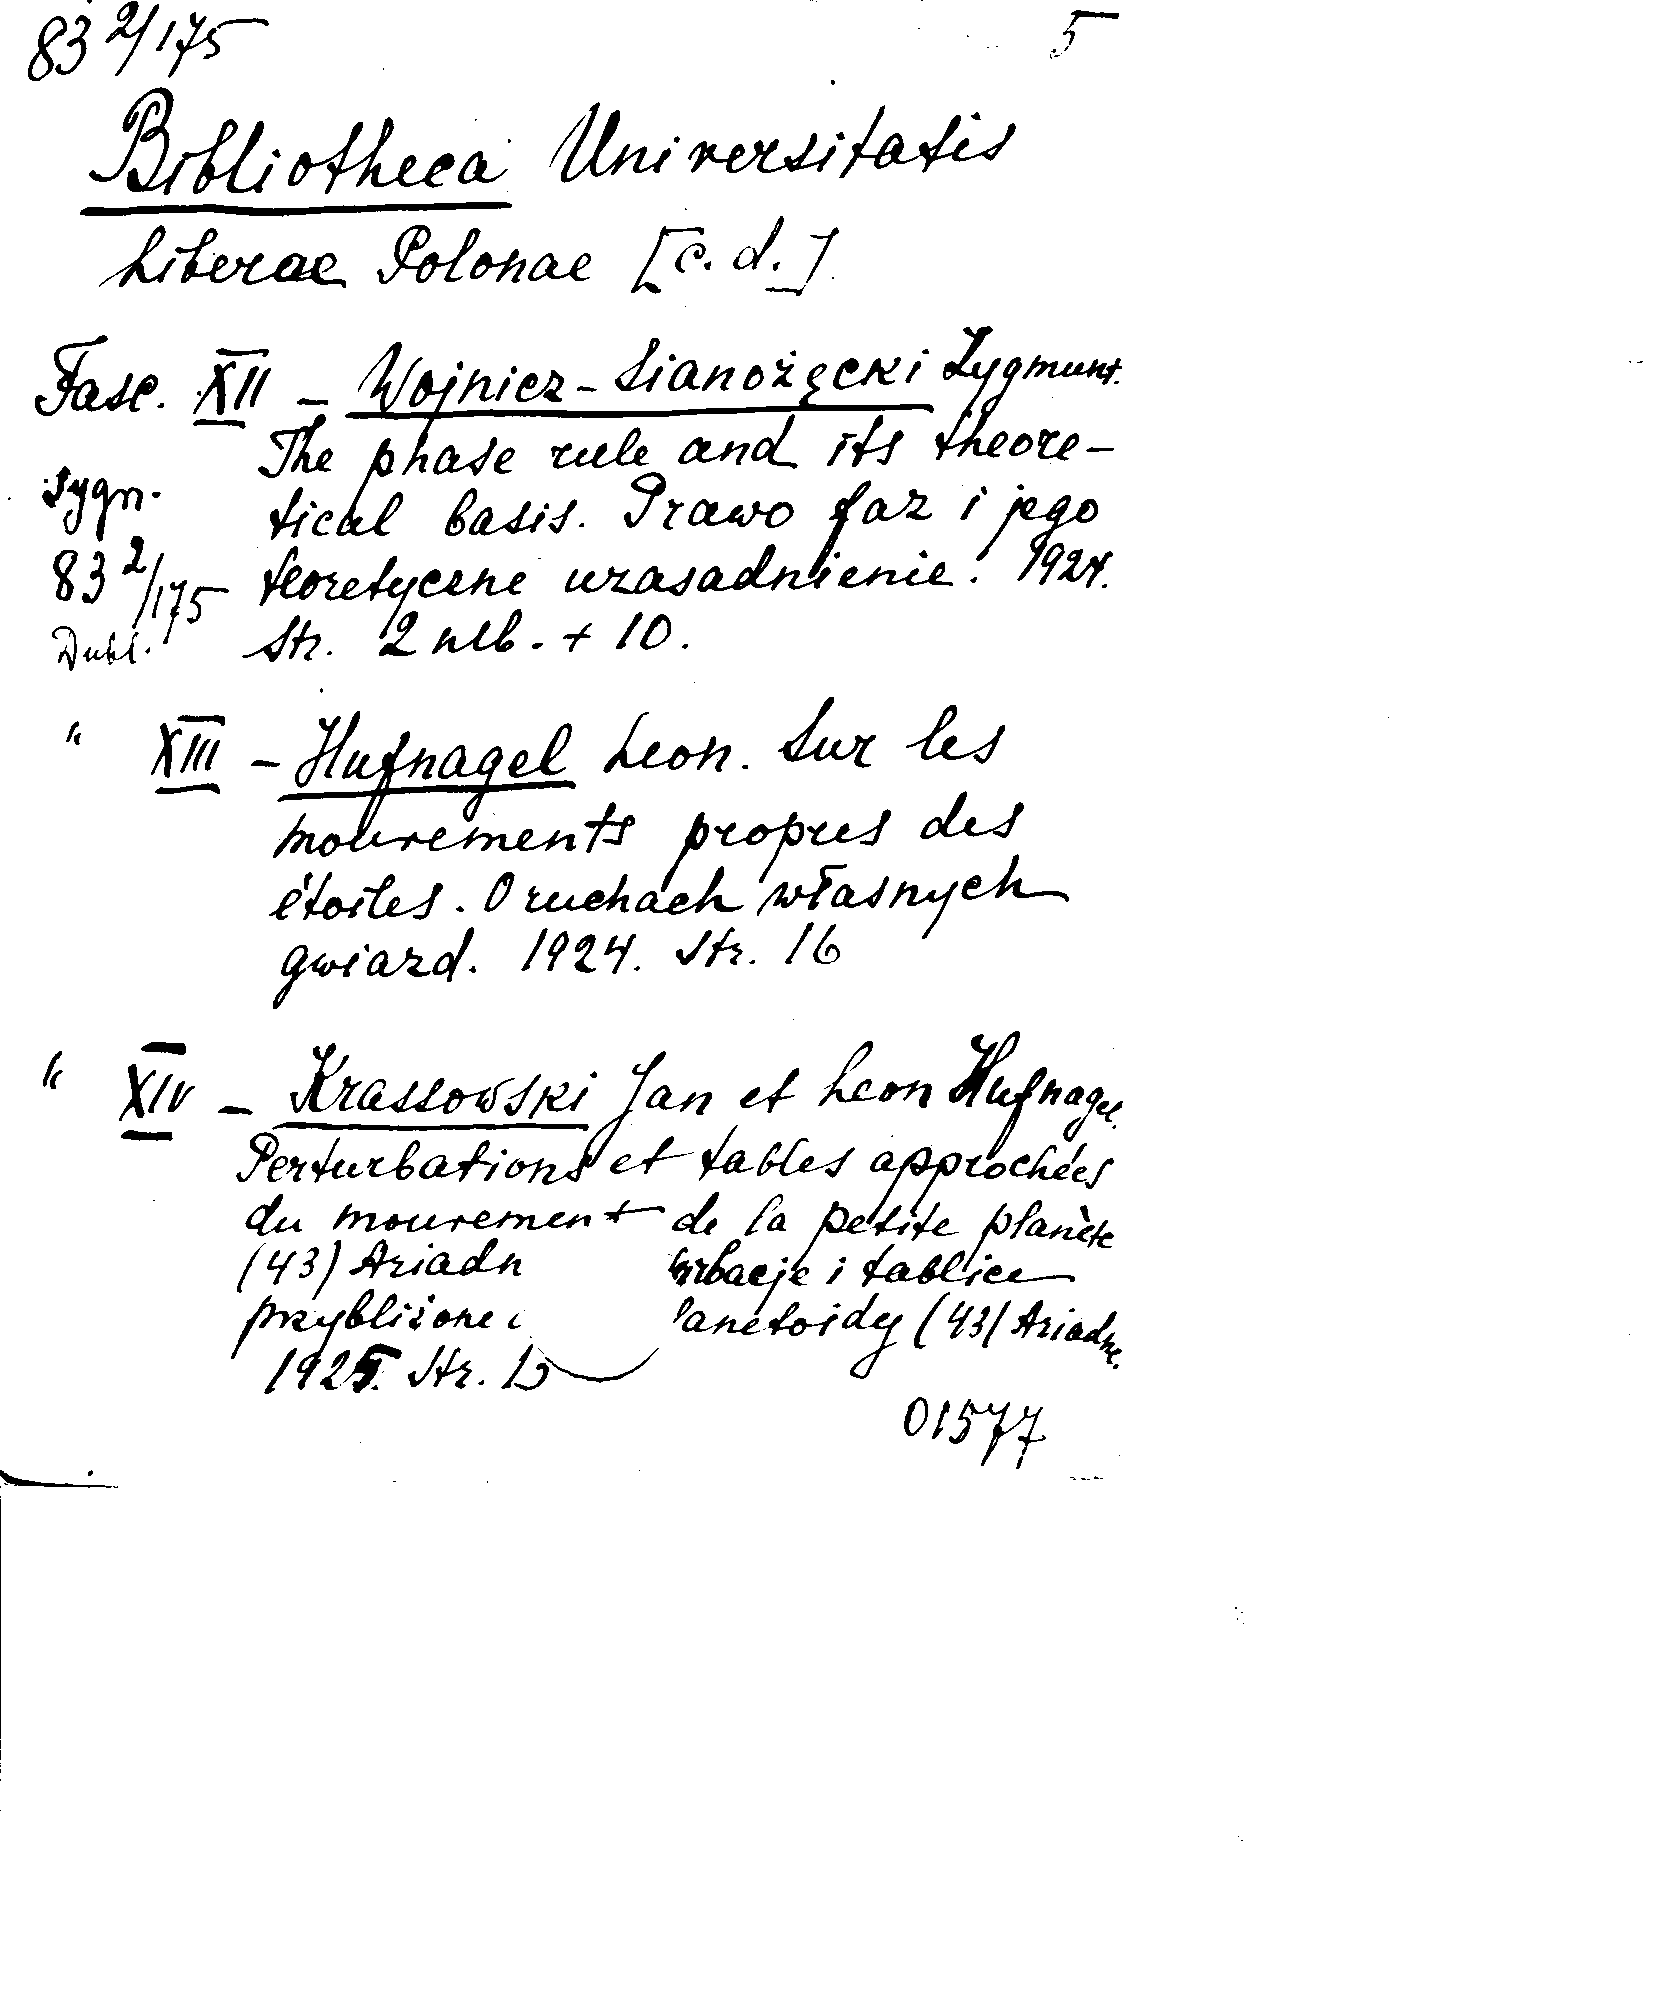 83 2/175 5
Bibliotheca Universitatis
Liberae Polonae [c. d.]
Fasc. XII - Wojnicz-Sianożęcki Zygmunt.
The phase rule and its theore-
sygn. tical basis. Prawo faz i jego
83 2/175 teoretyczne uzasadnienie. 1924.
Dubl. Str. 2 nlb. + 10.
" XIII - Hufnagel Leon. Sur les
mouvements propres des
étoiles. O ruchach własnych
gwiazd. 1924. Str. 16
" XIV - Krassowski Jan et Leon Hufnagel.
Perturbations et tables approchées
du mouvement de la petite planète
(43) Ariadn urbacje i tablice
przybliżone lanetoidy (43) Ariadne.
1925. Str.
01577